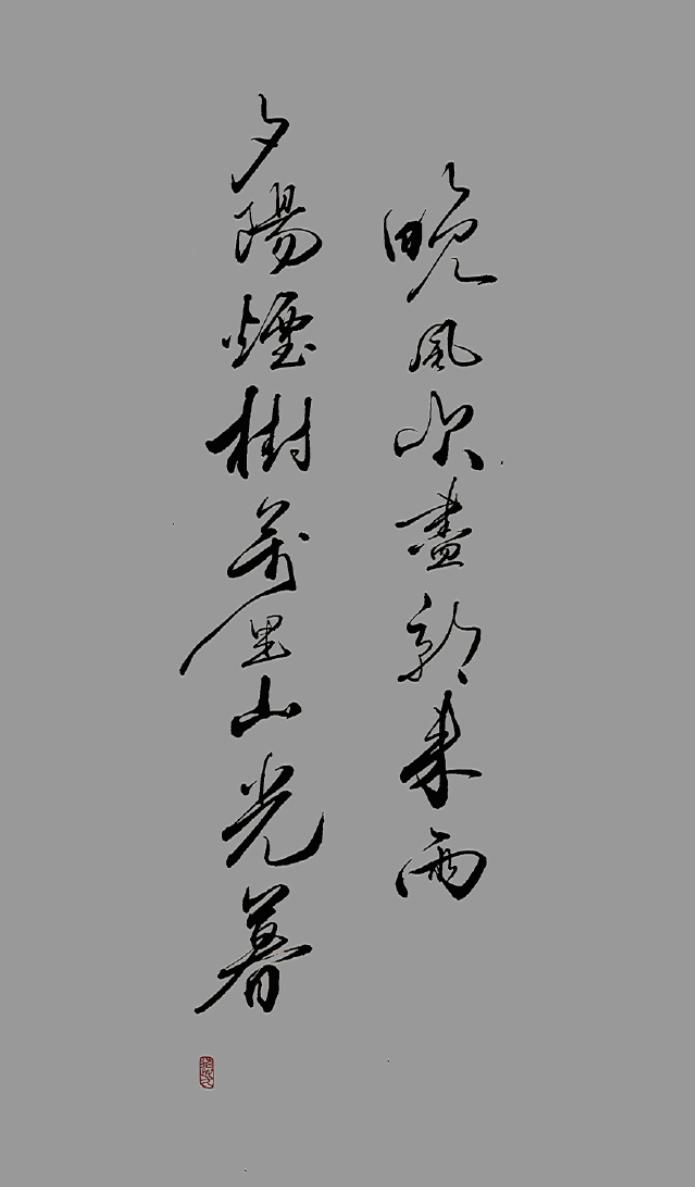 晚風吹盡朝來雨
夕陽煙樹萬里山光暮